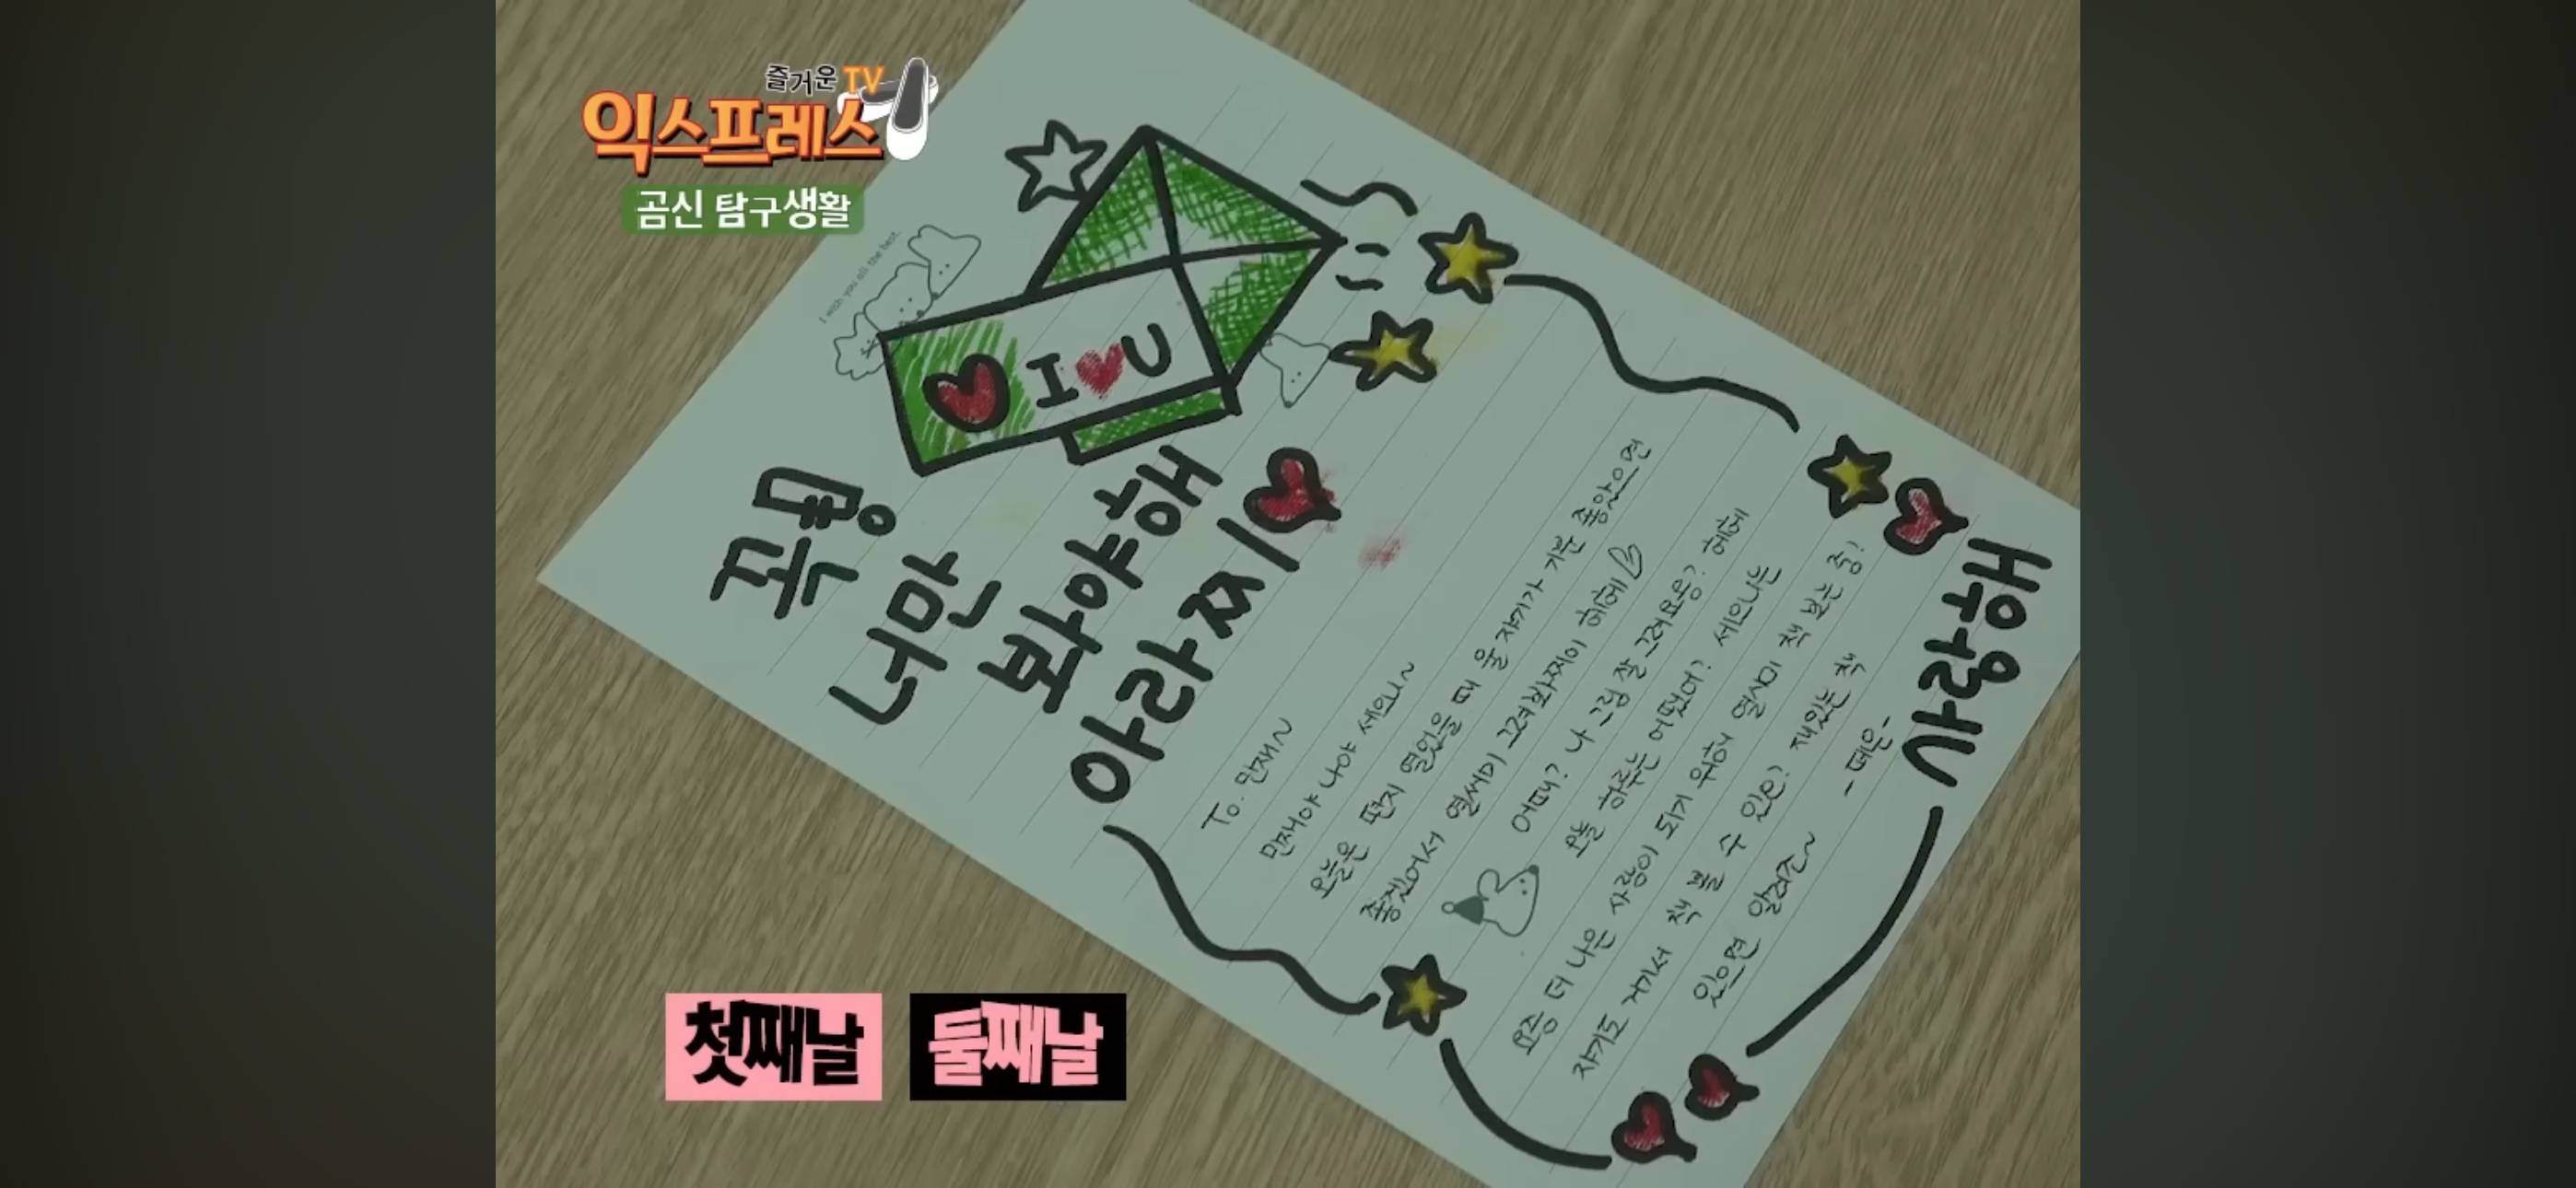 즐거운 TV
익스프레스
곰신 탐구생활
I wish you all the best.
H U
꼭
너만
봐야해
아라찌
To. 만재~
만재야 나야 세의니~
오늘은 편지 열었을 때 울 쟈기가 기분 좋았으면
좋겠어서 열씨미 꾸며화찌이 헤헤
어때? 나 그림 잘 그려요옹? 헤헤
오늘 하루는 어땠어? 세의니는
요즘 더 나은 사람이 되기 위해 열심히 책 보는 중!
쟈기도 거기서 책 볼 수 있음? 재밌는 책
있으면 알려죠~
사랑해
첫째날
둘째날